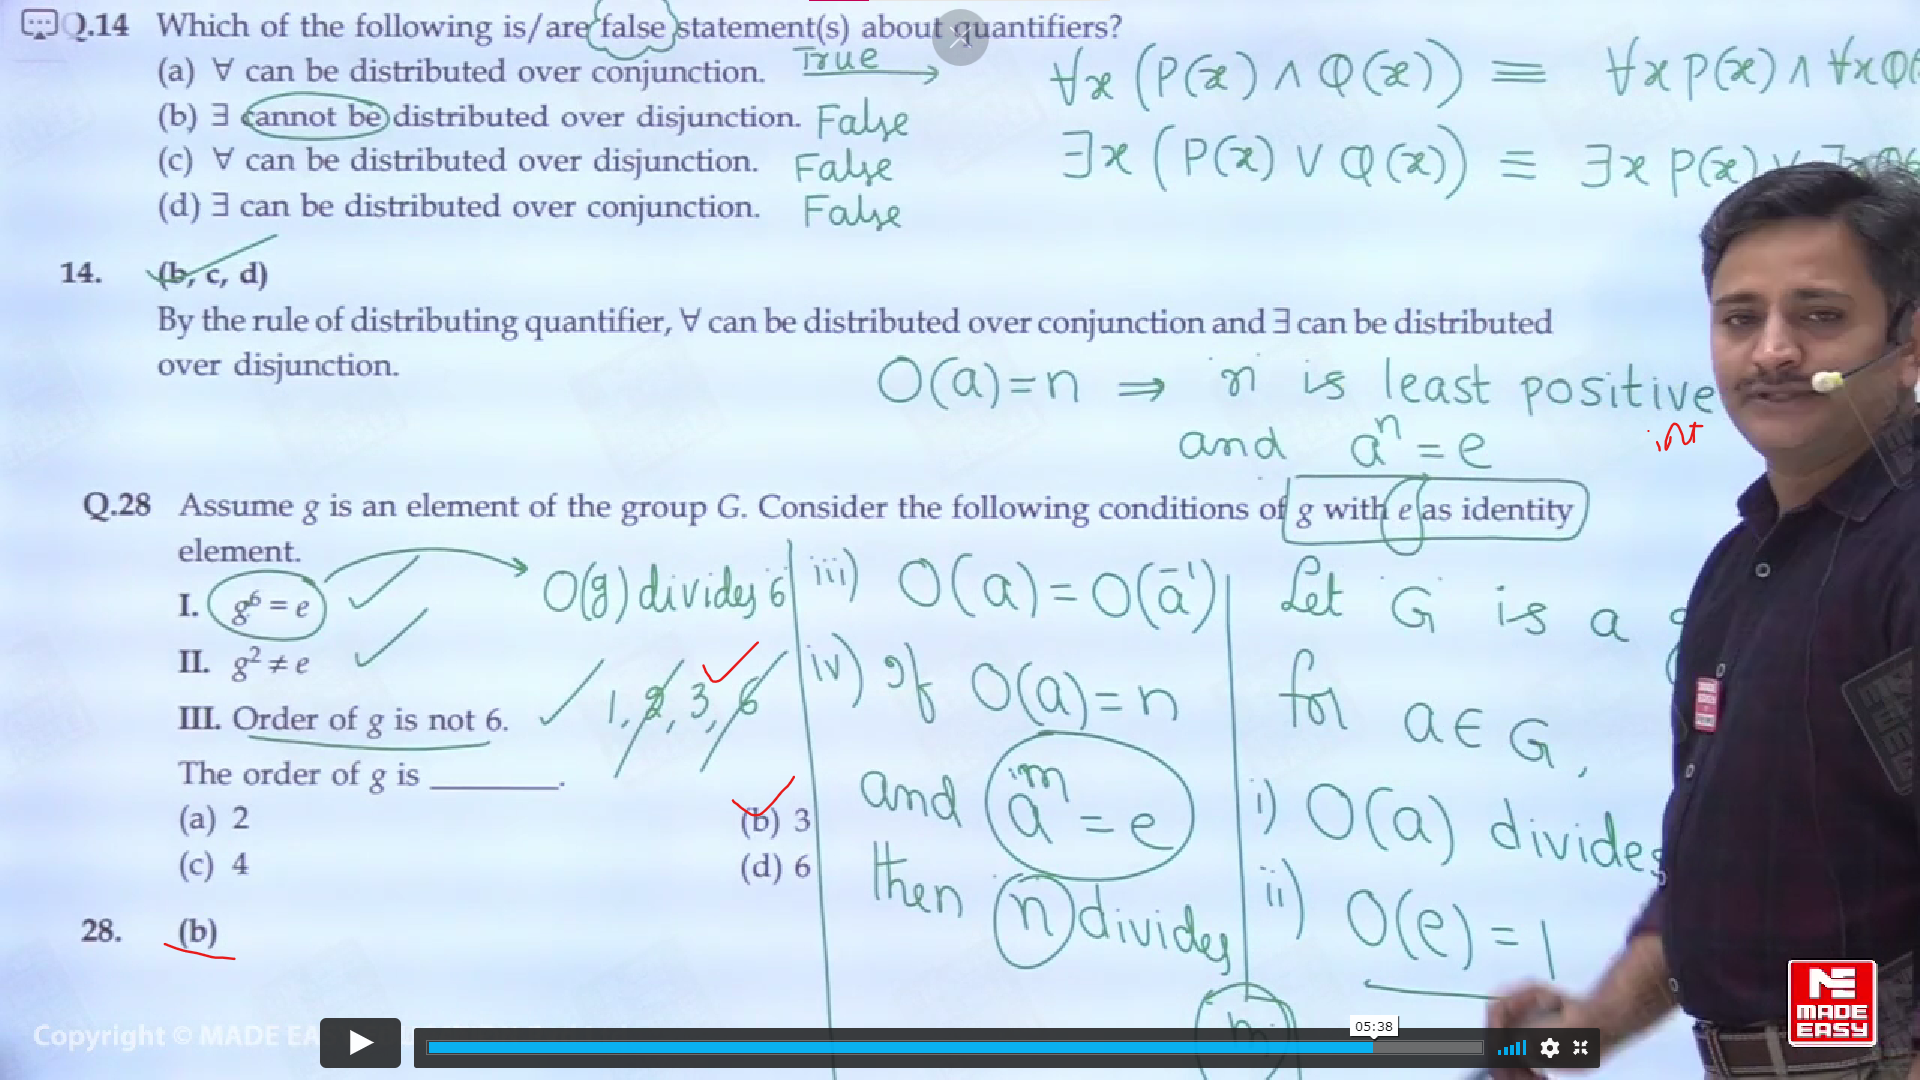 Q.14 Which of the following is/are false statement(s) about quantifiers?
(a) ∀ can be distributed over conjunction. True → ∀x (P(x) ∧ Q(x)) ≡ ∀x P(x) ∧ ∀x Q(
(b) ∃ cannot be distributed over disjunction. False
∃x (P(x) ∨ Q(x)) ≡ ∃x P(x) ∨
(c) ∀ can be distributed over disjunction. False
(d) ∃ can be distributed over conjunction. False
14. (b, c, d)
By the rule of distributing quantifier, ∀ can be distributed over conjunction and ∃ can be distributed
over disjunction.
O(a) = n ⇒ n is least positive
int
and aⁿ = e
Q.28 Assume g is an element of the group G. Consider the following conditions of g with e as identity
element.
I. g⁶ = e
II. g² ≠ e
III. Order of g is not 6.
The order of g is ________.
(a) 2 (b) 3
(c) 4 (d) 6
28. (b)
O(g) divides 6
1, 2, 3, 6
iii) O(a) = O(a⁻¹)
iv) If O(a) = n
and aᵐ = e
then n divides
m
Let G is a
for a ∈ G,
i) O(a) divides
ii) O(e) = 1
Copyright © MADE EA
05:38
MADE
EASY